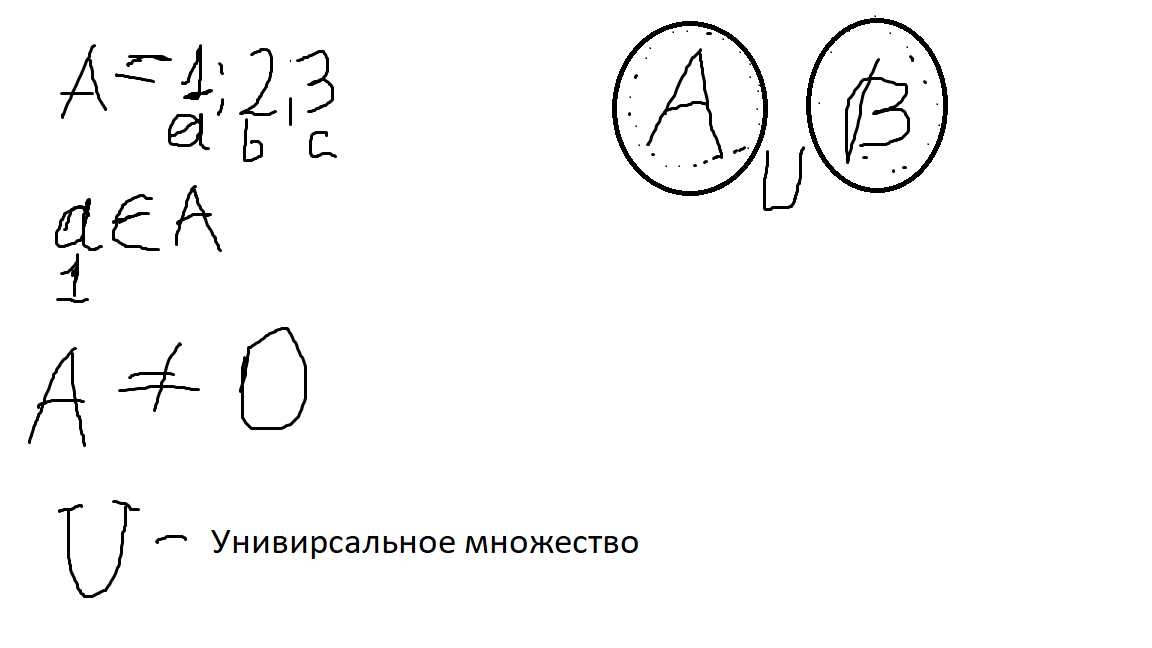 A = 1; 2, 3
a b c
a ∈ A
1
A ≠ 0
U – Унивирсальное множество
A ∪ B